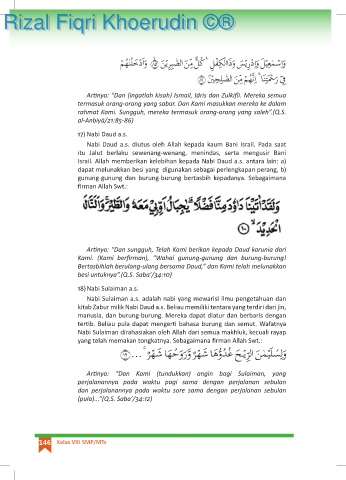 Rizal Fiqri Khoerudin ©®
وَاِسْمٰعِيْلَ وَاِدْرِيْسَ وَذَا الْكِفْلِۗ كُلٌّ مِّنَ الصّٰبِرِيْنَ ۙ ﴿٨٥﴾ وَاَدْخَلْنٰهُمْ
فِيْ رَحْمَتِنَاۗ اِنَّهُمْ مِّنَ الصّٰلِحِيْنَ ﴿٨٦﴾
Artinya: "Dan (ingatlah kisah) Ismail, Idris dan Zulkifli. Mereka semua
termasuk orang-orang yang sabar. Dan Kami masukkan mereka ke dalam
rahmat Kami. Sungguh, mereka termasuk orang-orang yang saleh".(Q.S.
al-Anbiya/21:85-86)
17) Nabi Daud a.s.
Nabi Daud a.s. diutus oleh Allah kepada kaum Bani Israil. Pada saat
itu Jalut berlaku sewenang-wenang, menindas, serta mengusir Bani
Israil. Allah memberikan kelebihan kepada Nabi Daud a.s. antara lain: a)
dapat melunakkan besi yang digunakan sebagai perlengkapan perang, b)
gunung-gunung dan burung-burung bertasbih kepadanya. Sebagaimana
firman Allah Swt.:
وَلَقَدْ اٰتَيْنَا دَاوٗدَ مِنَّا فَضْلًاۗ يٰجِبَالُ اَوِّبِيْ مَعَهٗ وَالطَّيْرَ ۚوَاَلَنَّا لَهُ
الْحَدِيْدَ ۙ ﴿١٠﴾
Artinya: "Dan sungguh, Telah Kami berikan kepada Daud karunia dari
Kami. (Kami berfirman), "Wahai gunung-gunung dan burung-burung!
Bertasbihlah berulang-ulang bersama Daud," dan Kami telah melunakkan
besi untuknya".(Q.S. Saba'/34:10)
18) Nabi Sulaiman a.s.
Nabi Sulaiman a.s. adalah nabi yang mewarisi ilmu pengetahuan dan
kitab Zabur milik Nabi Daud a.s. Beliau memiliki tentara yang terdiri dari jin,
manusia, dan burung-burung. Mereka dapat diatur dan berbaris dengan
tertib. Beliau pula dapat mengerti bahasa burung dan semut. Wafatnya
Nabi Sulaiman dirahasiakan oleh Allah dari semua makhluk, kecuali rayap
yang telah memakan tongkatnya. Sebagaimana firman Allah Swt.:
وَلِسُلَيْمٰنَ الرِّيْحَ غُدُوُّهَا شَهْرٌ وَّرَوَاحُهَا شَهْرٌۚ ... ﴿١٢﴾
Artinya: "Dan Kami (tundukkan) angin bagi Sulaiman, yang
perjalanannya pada waktu pagi sama dengan perjalanan sebulan
dan perjalanannya pada waktu sore sama dengan perjalanan sebulan
(pula)..."(Q.S. Saba'/34:12)
146 Kelas VIII SMP/MTs